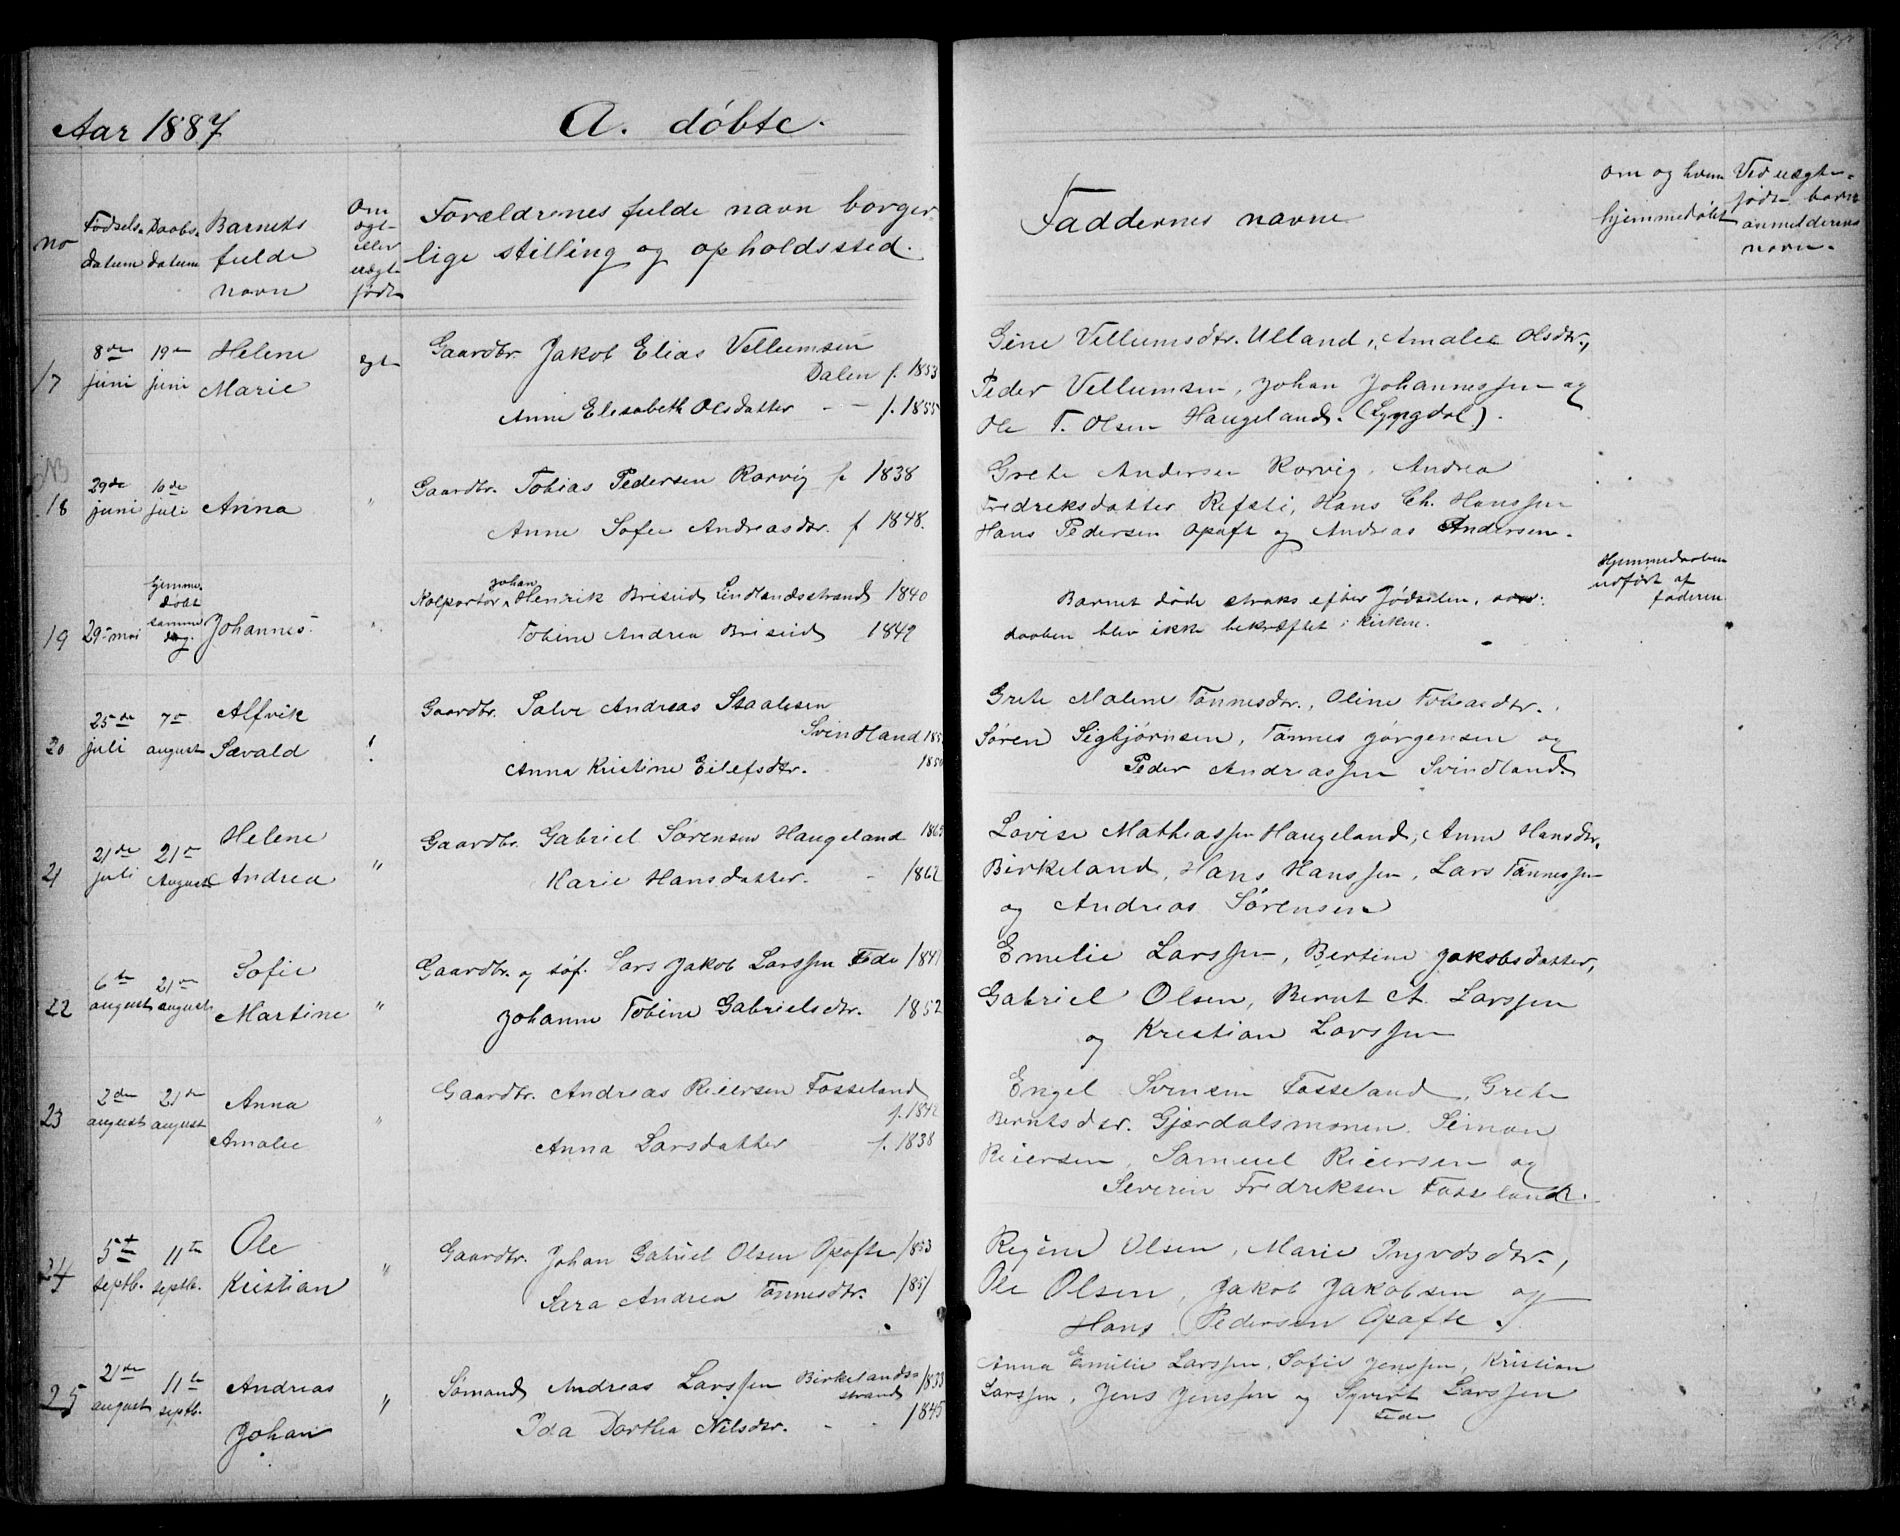 Aar 1887
A. døbte.
no
Fødsels-
datum
Daabs-
datum
Barnets
fulde
navn
Om
ægt-
eller
uægt-
født
Forældrenes fulde navn borger-
lige stilling og opholdssted.
Faddernes navne
om og hvem
hjemmedøbt
Ved uægte-
fødte barn
anmelderens
navn.
17
8de juni
19de juni
Helene
Marie
egt
Gaardbr. Jakob Elias Vellumsen
Dalen f. 1853
Anne Elisabeth Olsdatter - - f. 1855
Gine Vellumsdtr. Ulland, Amalie Olsdtr.,
Peder Vellumsen, Johan Johannessen og
Ole T. Olsen Haugeland. (Lyngdal).
NB
18
29de juni
10de juli
Anna
"
Gaardbr. Tobias Pedersen Rørvig f. 1838
Anne Sofie Andreasdr. f 1848.
Grete Andersen Rørvig, Andrea
Fredreksdatter Refsti, Hans Ch. Hanssen
Hans Pedersen Opøft og Andreas Andersen.
19
29- mai
hjemme-
døbt
samme
dag.
Johannes
"
Johan
Kolportør Henrik Briseid Lindlandsstrand 1840
Tobine Andrea Briseid 1849
Barnet døde straks efter fødselen,
daaben blev ikke bekræftet i kirken.
Hjemmedaaben
udført af
faderen
20
25de juli
7de august
Alfvik
Sævald
Gaardbr. Salve Andreas Staalesen
Svindland
Anna Kristine Eilefsdtr.
Grete Malene Tønnesdtr., Oline Tobiasdtr.
Søren Sigbjørnsen, Tønnes Jørgensen og
Peder Andreassen Svindland.
21
21de juli
21de August
Helene
Andrea
"
Gaardbr. Gabriel Sørensen Haugeland 1865
Karie Hansdatter. - 1862
Lovise Mathiassen Haugeland, Anne Hansdtr.
Birkeland, Hans Hanssen, Lars Tønnessen
og Andreas Sørensen
22
6te august
21de august
Sofie
Martine
"
Gaardbr. og søf. Lars Jakob Larssen Fede
Johanne Tobine Gabrielsdtr. 1852
Emelie Larssen, Bertine Jakobsdatter,
Gabriel Olsen, Bernt A. Larssen
og Kristian Larssen
23
2den august
21de august
Anna
Amalie
"
Gaardbr. Andreas Reiersen Fosseland
f. 1842
Anna Larsdatter f. 1838
Engel Svensen Fosseland, Grete
Berntsdtr. Gjærdalsmonen, Seimon
Reiersen, Samuel Reiersen og
Severin Fredriksen Fosseland.
24
5te septb.
11te septb.
Ole
Kristian
"
Gaardbr. Johan Gabriel Olsen Opøfte 1853
Sara Andrea Tønnesdtr. 1851
Regine Olsen, Marie Ingvdsdtr.,
Ole Olsen, Jakob Jakobsen og
Hans Pedersen Opøfte.
25
21de august
11te septb.
Andreas
Johan
"
Sømand Andreas Larssen Birkelands-
strand 1833
Ida Dorthea Nilsdtr. - - 1845
Anna Emilie Larssen, Sofie Jenssen, Kristian
Larssen, Jens Jenssen og Syvert Larssen
Fede